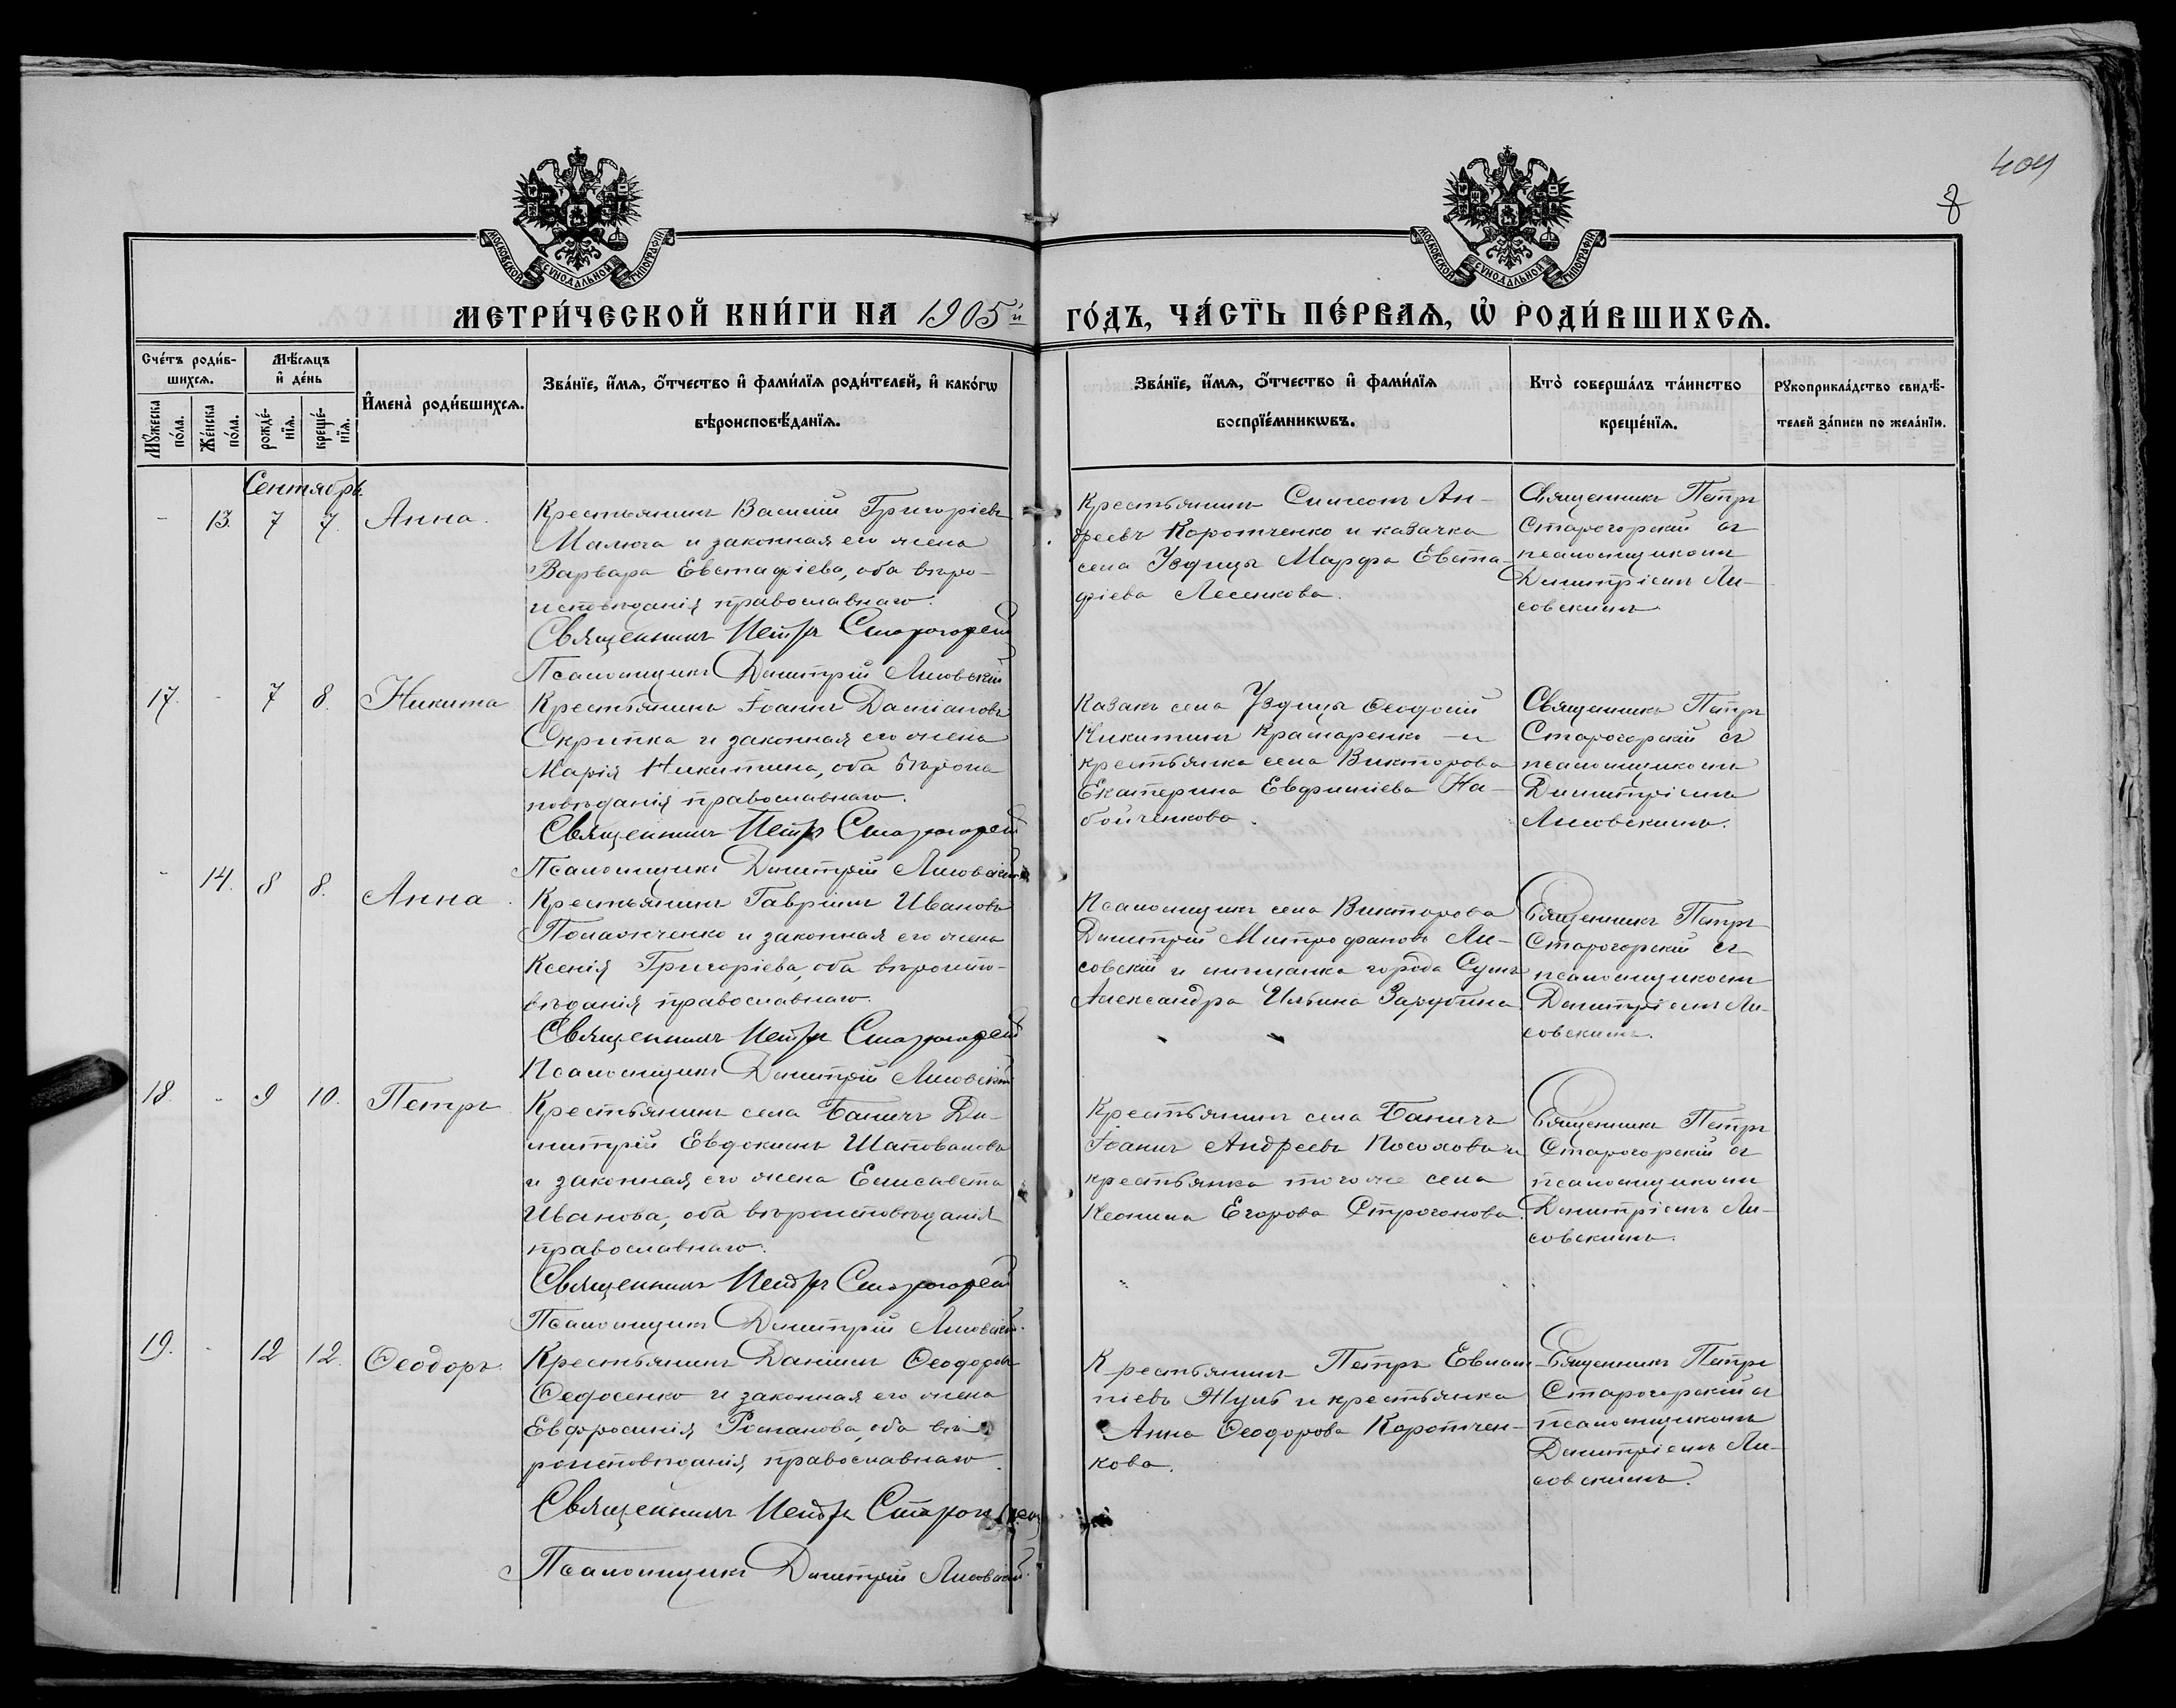 404
8
МОСКОВСКОЙ СУНОДАЛЬНОЙ ТИПОГРАФІИ
МОСКОВСКОЙ СУНОДАЛЬНОЙ ТИПОГРАФІИ
МЕТРИ́ЧЕСКОЙ КНИ́ГИ НА 1905й ГО́ДЪ, ЧА́СТЬ ПЕ́РВАѦ, Ѡ҆ РОДИ́ВШИХСѦ.
Сче́тъ роди́в-
шихсѧ.
Мꙋ́жеска по́ла.
Же́нска по́ла.
Мѣ́сѧцъ
и҆ де́нь
рожде́-
нїѧ.
креще́-
нїѧ.
И҆мена̀ роди́вшихсѧ.
Зва́нїе, и҆́мѧ, ѻ҆́тчество и҆ фами́лїѧ роди́телей, и҆ како́гѡ
вѣроисповѣ́данїѧ.
Зва́нїе, и҆́мѧ, ѻ҆́тчество и҆ фами́лїѧ
воспрїе́мникѡвъ.
Кто̀ соверша́лъ та́инство
креще́нїѧ.
Рꙋкоприкла́дство свидѣ́-
телей за́писи по жела́нїю.
Сентябрь
- 13. 7 7. Анна.
Крестьянинъ Василій Григоріевъ
Малюга и законная его жена
Варвара Евстафіева, оба вѣро-
исповѣданія православнаго.
Священникъ Петръ Старогорскій
Псаломщикъ Димитрій Лисовскій
Крестьянинъ Симеонъ Ан-
дреевъ Коротченко и казачка
села Уздицы Марфа Евста-
фіева Лесенкова.
Священникъ Петръ
Старогорскій съ
псаломщикомъ
Димитріемъ Ли-
совскимъ.
17. - 7 8. Никита
Крестьянинъ Іоаннъ Даміановъ
Скрипка и законная его жена
Марія Никитина, оба вѣроис
повѣданія православнаго.
Священникъ Петръ Старогорскій
Псаломщикъ Димитрій Лисовскій
Казакъ села Уздицы Ѳеодосій
Никитинъ Крамаренко - и
крестьянка села Викторова
Екатерина Евфиміева На-
бойченкова.
Священникъ Петръ
Старогорскій съ
псаломщикомъ
Димитріемъ
Лисовскимъ.
- 14. 8 8. Анна.
Крестьянинъ Гавріилъ Ивановъ
и законная его жена
Ксенія Григоріева, оба вѣроиспо-
вѣданія православнаго.
Священникъ Петръ Старогорскій
Псаломщикъ Димитрій Лисовскій
Псаломщикъ села Викторова
Димитрій Митрофановъ Ли-
совскій и мѣщанка города Сумъ
Александра Ильина Зарубина.
Священникъ Петръ
Старогорскій съ
псаломщикомъ
Димитріемъ Ли-
совскимъ.
18. - 9 10. Петръ
Крестьянинъ села Баничъ Ди-
митрій Евдокимъ Шаповаловъ
и законная его жена Елисавета
Иванова, оба вѣроисповѣданія
православнаго.
Священникъ Петръ Старогорскій
Псаломщикъ Димитрій Лисовскій.
Крестьянинъ села Баничъ
Іоаннъ Андреевъ Посоховъ и
крестьянка того же села
Егорова Строгонова.
Священникъ Петръ
Старогорскій съ
псаломщикомъ
Димитріемъ Ли-
совскимъ.
19. - 12 12. Ѳеодоръ.
Крестьянинъ Даніилъ Ѳеодоровъ
Ѳедосенко и законная его жена
Евфросинія Романова, оба вѣ
роисповѣданія православнаго.
Священникъ Петръ Старогорскій
Псаломщикъ Димитрій Лисовскій.
Крестьянинъ Петръ Евлам
піевъ Жуль и крестьянка
Анна Ѳеодорова Коротчен-
кова.
Священникъ Петръ
Старогорскій съ
псаломщикомъ
Димитріемъ Ли-
совскимъ.